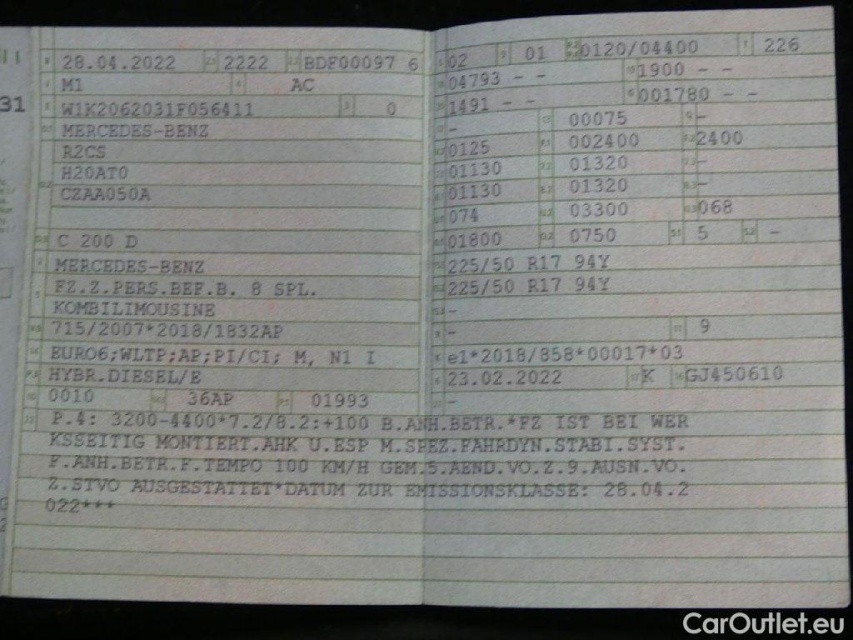 31
28.04.2022 2222 BDF00097 6
M1 AC
W1K2062031F056411 0
MERCEDES-BENZ
R2CS
H20AT0
CZAA050A
C 200 D
MERCEDES-BENZ
FZ.Z.PERS.BEF.B. 8 SPL.
KOMBILIMOUSINE
715/2007*2018/1832AP
EURO6;WLTP;AP;PI/CI; M, N1 I
HYBR.DIESEL/E
0010 36AP 01993
02 01 0120/04400 226
04793 - - 1900 - -
1491 - - 001780 - -
- 00075 -
0125 002400 2400
01130 01320 -
01130 01320 -
074 03300 068
01800 0750 5 -
225/50 R17 94Y
225/50 R17 94Y
-
- 9
e1*2018/858*00017*03
23.02.2022 K GJ450610
-
P.4: 3200-4400*7.2/8.2:+100 B.ANH.BETR.*FZ IST BEI WER
KSSEITIG MONTIERT.AHK U.ESP M.SPEZ.FAHRDYN.STABI.SYST.
F.ANH.BETR.F.TEMPO 100 KM/H GEM.5.AEND.VO.Z.9.AUSN.VO.
Z.STVO AUSGESTATTET*DATUM ZUR EMISSIONSKLASSE: 28.04.2
022***
CarOutlet.eu